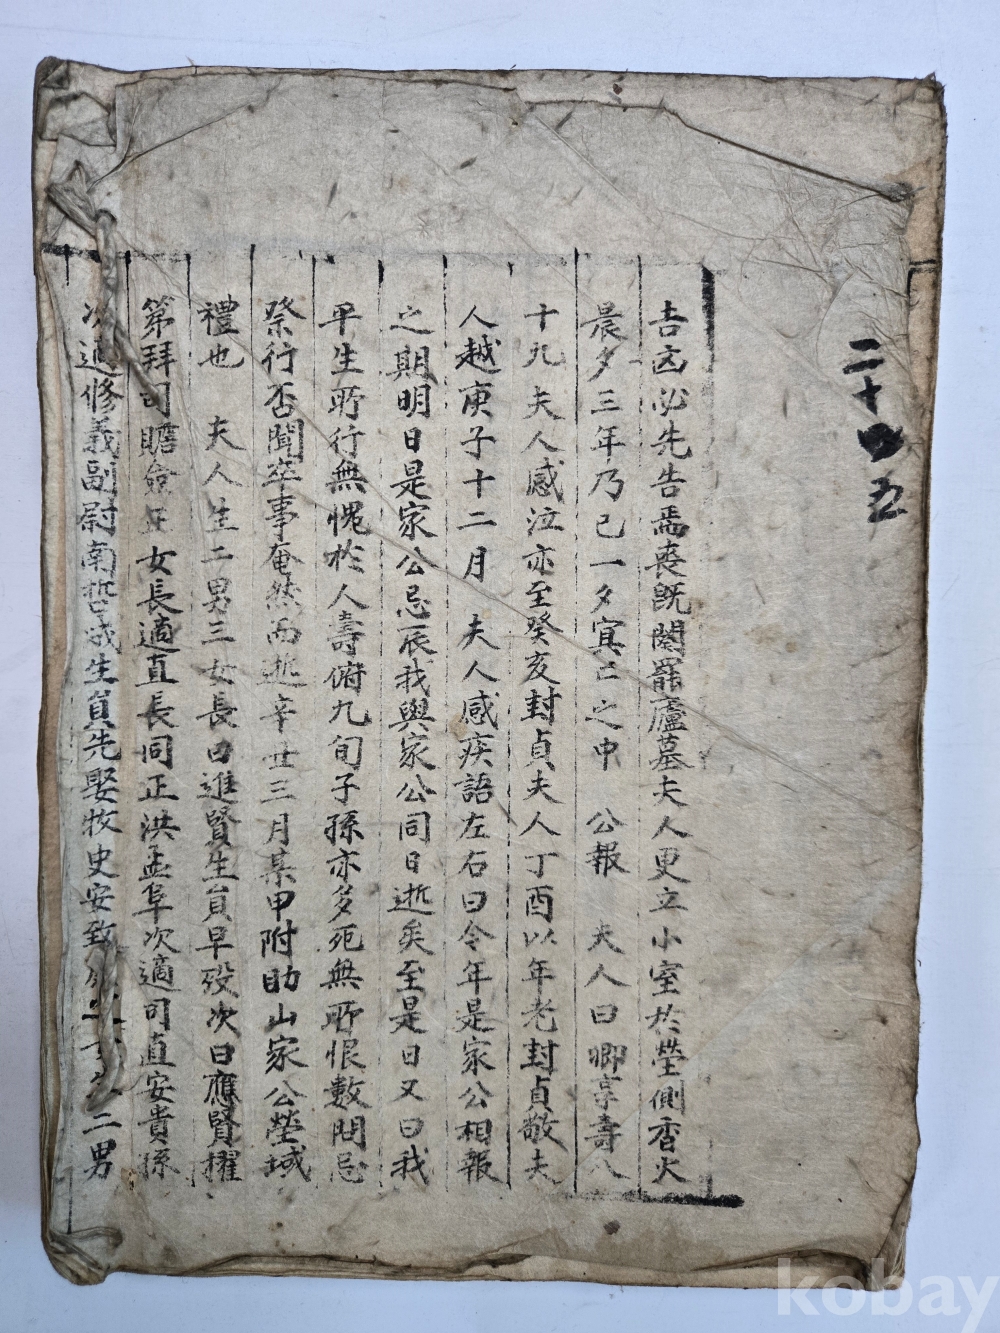 二十四五
吉凶必先告焉喪旣闋罷廬墓夫人更立小室於塋側香火
晨夕三年乃已一夕寘㠯之中 公報 夫人曰卿享壽八
十九夫人感泣亦至癸亥封貞夫人丁酉以年老封貞敬夫
人越庚子十二月 夫人感疾語左右曰今年是家公相報
之期明日是家公忌辰我與家公同日逝矣至是日又曰我
平生所行無愧於人壽俯九旬子孫亦多死無所恨數問忌
祭行否聞卒事奄然而逝辛丑三月某甲附助山家公塋域
禮也 夫人生二男三女長曰進賢生員早歿次曰應賢擢
第拜司瞻僉正女長適直長同正洪孟阜次適司直安貴孫
次適修義副尉南哲成生員先娶牧史安致 二男
kobay